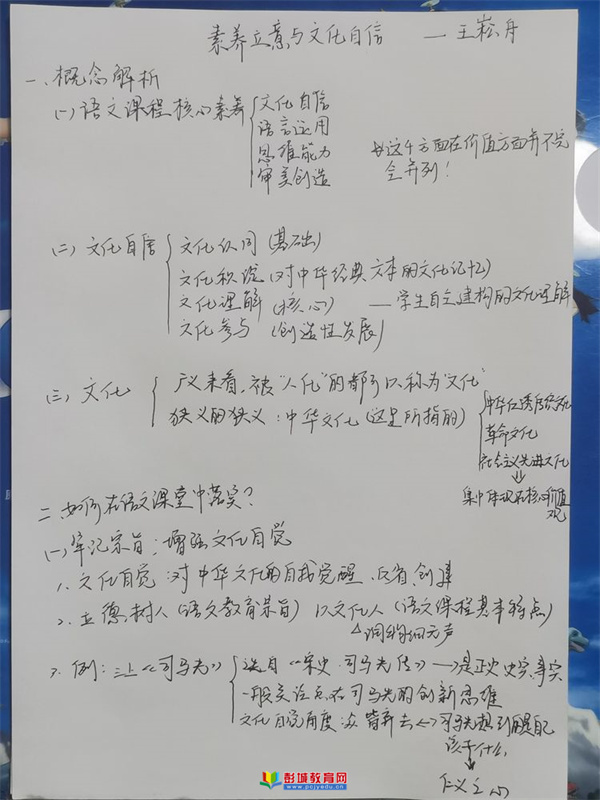 素养立意与文化自信 — 王崧舟
一、概念解析
(一)语文课程核心素养
文化自信
语言运用
思维能力
审美创造
这4方面在价值方面并不完
全并列!
(二)文化自信
文化认同(基础)
文化积淀(对中华经典文本的文化记忆)
文化理解(核心) — 学生自主建构的文化理解
文化参与(创造性发展)
(三)文化
广义来看,被“人化”的都可以称为“文化”
狭义的狭义:中华文化(这里所指的)
中华优秀传统文化
革命文化
社会主义先进文化
集中体现在核心价值
观
二、如何在语文课堂中落实?
(一)牢记宗旨:增强文化自觉
1、文化自觉:对中华文化的自我觉醒、反省、创建
2、立德树人(语文教育宗旨) 以文化人(语文课程基本特点)
润物细无声
3、例:三上《司马光》
选自《宋史·司马光传》→是正史、史实、事实
一般关注点在司马光的创新思维
文化自觉角度:众皆弃去↔司马光想到的是自己
该干什么
仁义之心
彭城教育网
www.pcjyedu.cn